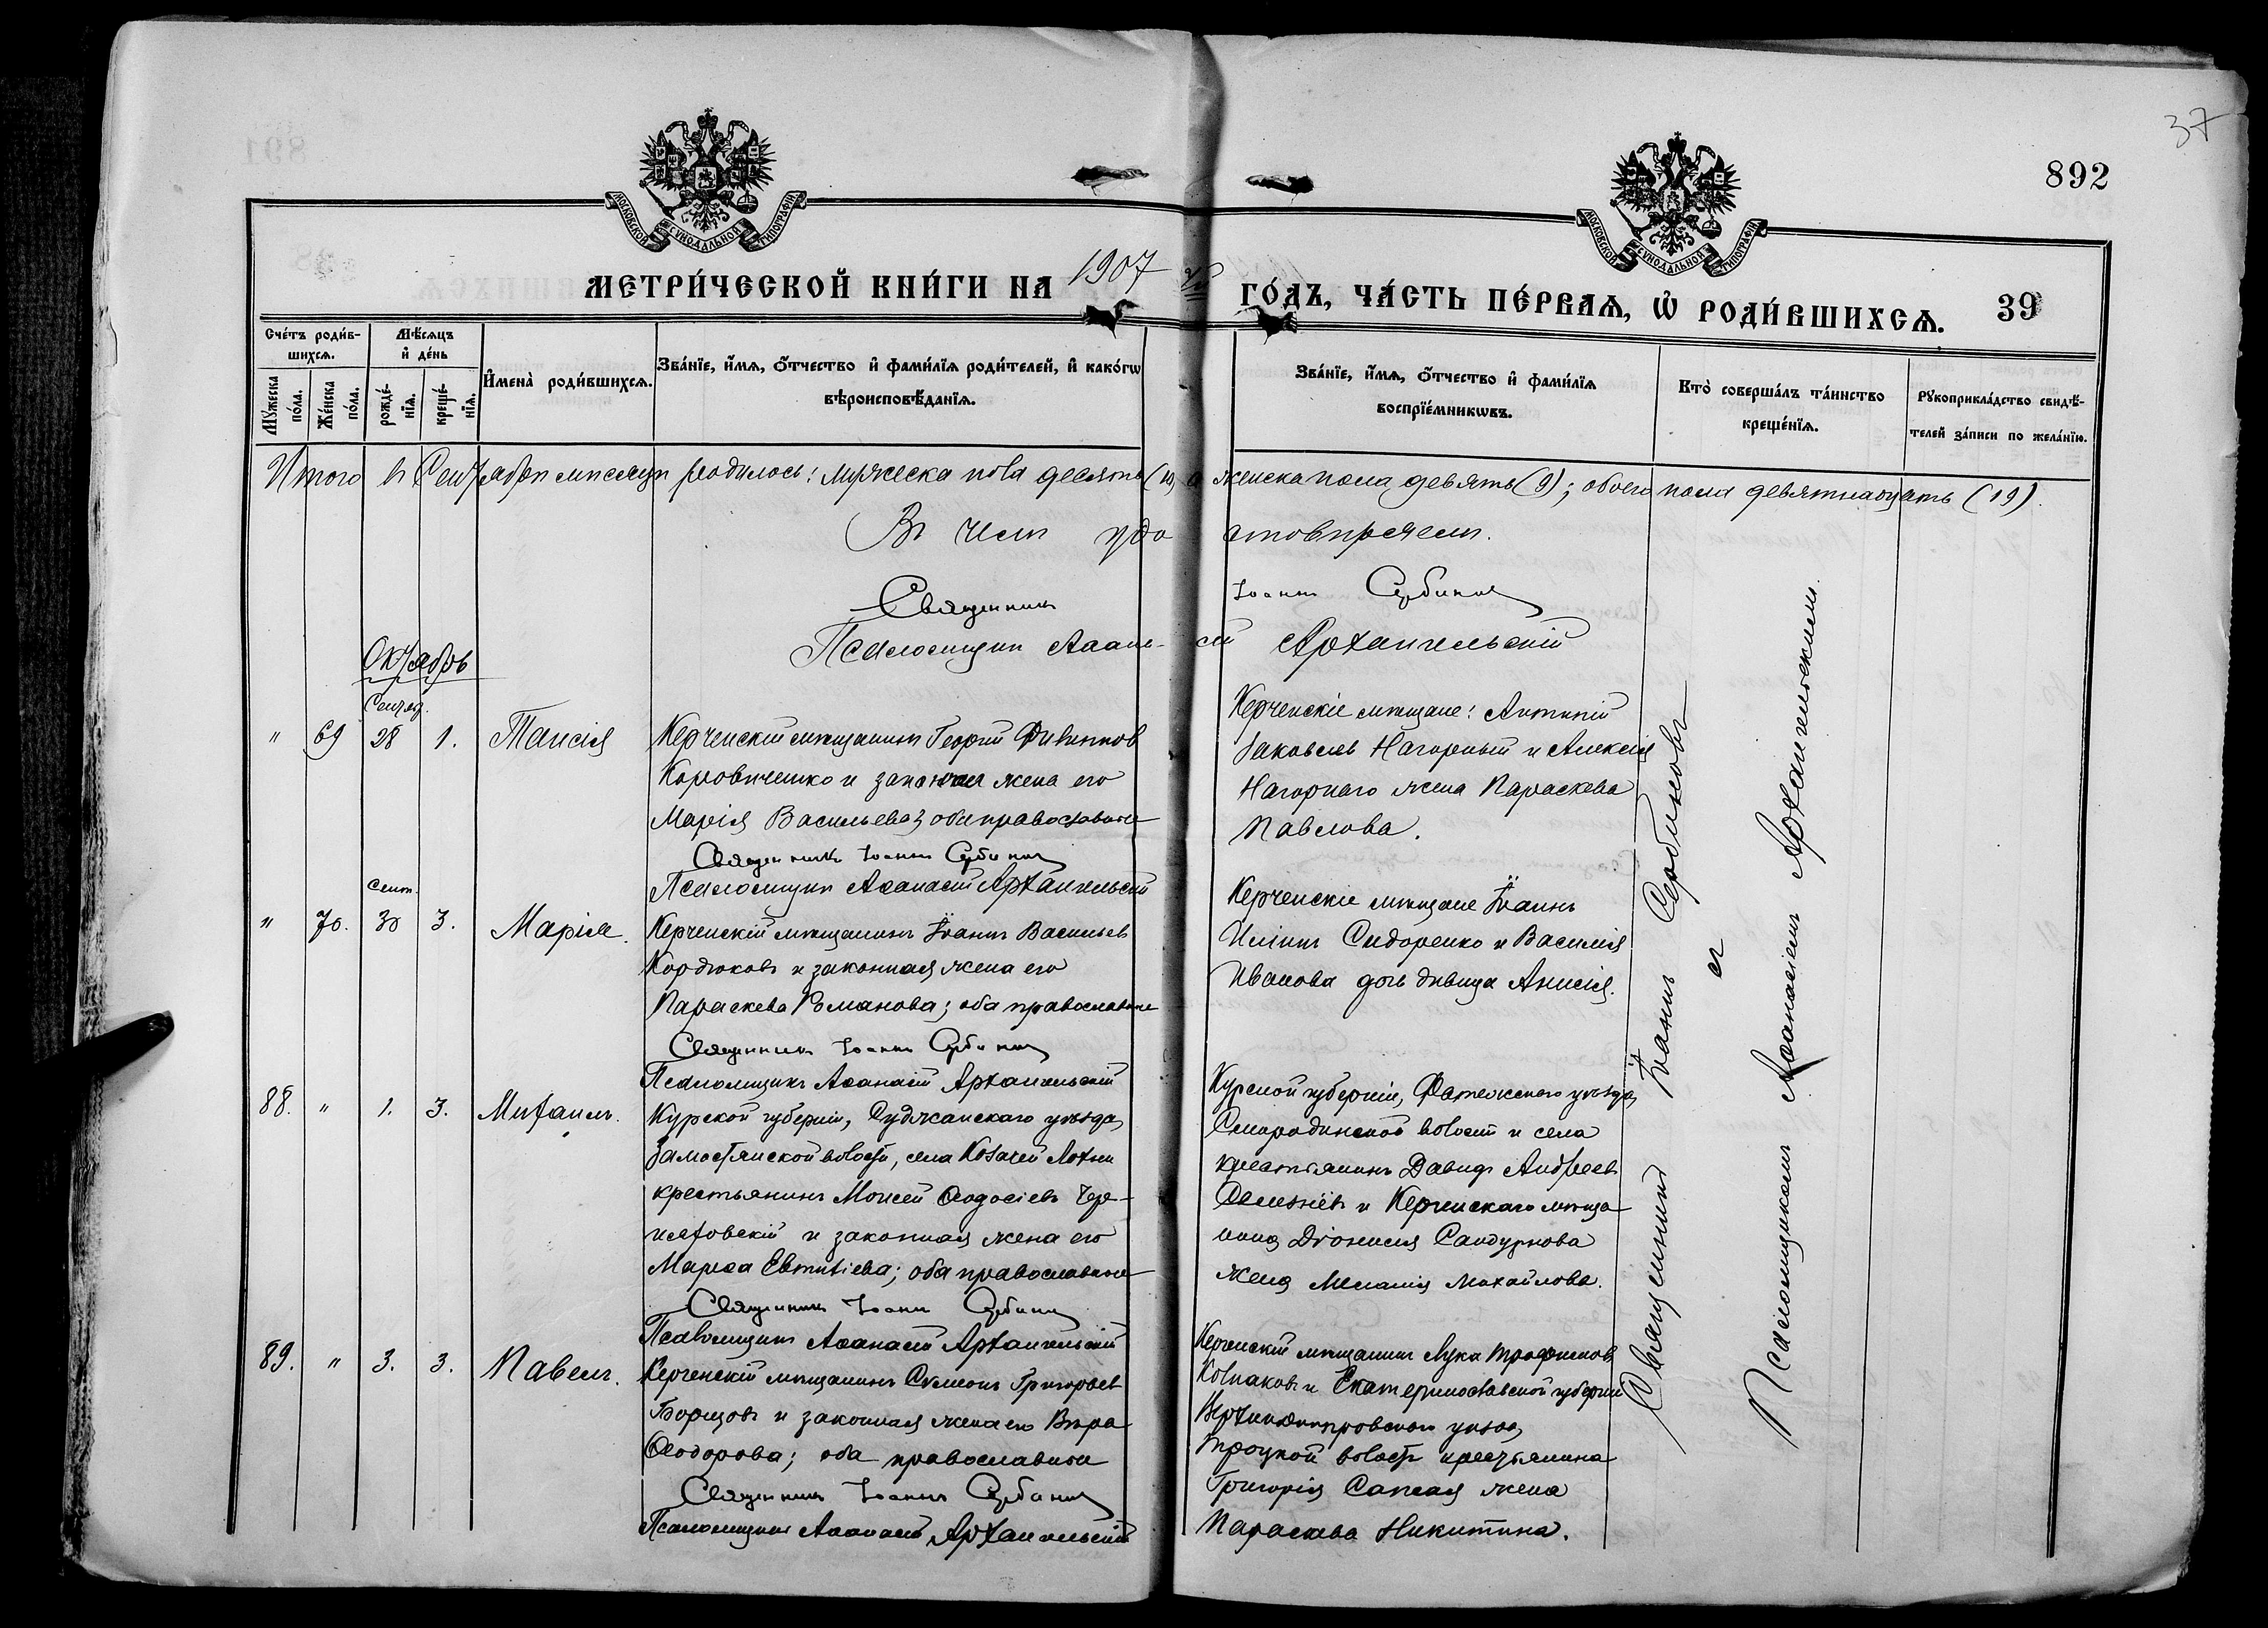 37
892
МОСКОВСКОЙ СѴНОДАЛЬНОЙ ТИПОГРАФІИ
МОСКОВСКОЙ СѴНОДАЛЬНОЙ ТИПОГРАФІИ
МЕТРИ́ЧЕСКОЙ КНИ́ГИ НА 1907 й ГО́ДЪ, ЧА́СТЬ ПЕ́РВАѦ, Ѡ РОДИ́ВШИХСѦ. 39
Сче́тъ роди́в-
шихсѧ.
Мꙋ́жеска по́ла.
Же́нска по́ла.
Мѣ́сѧцъ
и҆ де́нь
рожде́-
нїѧ.
креще́-
нїѧ.
И҆мена̀ роди́вшихсѧ.
Зва́нїе, и҆́мѧ, ѻ҆́тчество и҆ фами́лїѧ роди́телей, и҆ како́гѡ
вѣроисповѣ́данїѧ.
Зва́нїе, и҆́мѧ, ѻ҆́тчество и҆ фами́лїѧ
воспрїе́мникѡвъ.
Кто̀ соверша́лъ та́инство
креще́нїѧ.
Рꙋкоприкла́дство свидѣ́-
телей за́писи по жела́нїю.
Итого въ Сентябрѣ мѣсяцѣ родилось: мужеска пола десять (10) а женска пола девять (9); обоего пола девятнадцать (19).
Въ чемъ удостовѣряемъ.
Священникъ Іоаннъ Сербиновъ
Псаломщикъ Аѳанасій Архангельскій
Октябрь
Сентяб.
" 69 28 1. Таисія
Керченскій мѣщанинъ Георгій Филипповъ
Коровиченко и законная жена его
Марія Васильева; оба православные
Священникъ Іоаннъ Сербиновъ
Псаломщикъ Аѳанасій Архангельскій
Керченскіе мѣщане: Антипій
Іаковлевъ Нагорный и Алексія
Нагорнаго жена Параскева
Павлова.
Сент.
" 70. 30 3. Марія.
Керченскій мѣщанинъ Іоаннъ Васильевъ
Кордюковъ и законная жена его
Параскева Романова; оба православные
Священникъ Іоаннъ Сербиновъ
Псаломщикъ Аѳанасій Архангельскій
Керченскіе мѣщане Іоаннъ
Иліинъ Сидоренко и Василія
Иванова дочь дѣвица Анисія.
88. " 1. 3. Михаилъ.
Курской губерніи, Суджанскаго уѣзда,
Замостянской волости, села Козачей Локни
крестьянинъ Моисей Ѳеодосіевъ Чере-
и законная жена его
Марѳа Евтихіева; оба православные
Священникъ Іоаннъ Сербиновъ
Псаломщикъ Аѳанасій Архангельскій
Курской губерніи, Фатежскаго уѣзда,
Смородинской волости и села
крестьянинъ Давидъ Андреевъ
Селезнёвъ и Керченскаго мѣща-
нина Діонисія Сандурнова
жена Меланія Михайлова.
89. " 3. 3. Павелъ.
Керченскій мѣщанинъ Сумеонъ Григорьевъ
Борщовъ и законная жена его Вѣра
Ѳеодорова; оба православные
Священникъ Іоаннъ Сербиновъ
Псаломщикъ Аѳанасій Архангельскій
Керченскій мѣщанинъ Лука Трофимовъ
Колпаковъ и Екатеринославской губерніи
Верхнеднѣпровскаго уѣзда,
Троицкой волости крестьянина
Григорія жена
Параскева Никитина.
Священникъ Іоаннъ Сербиновъ
съ
Псаломщикомъ Аѳанасіемъ Архангельскимъ.